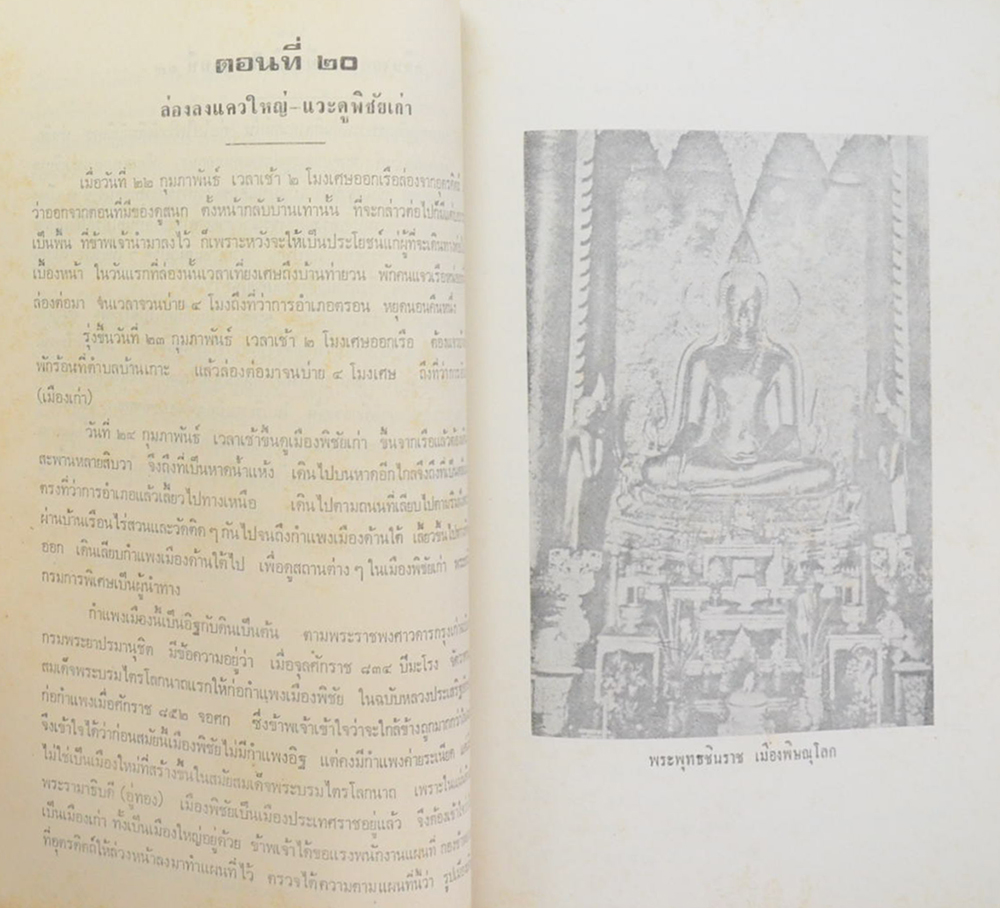 ตอนที่ ๒๐
ล่องลงแควใหญ่-แวะดูพิชัยเก่า
เมื่อวันที่ ๒๒ กุมภาพันธ์ เวลาเช้า ๒ โมงเศษออกเรือล่องจากอุตรดิตถ์
ว่าออกจากตอนที่มีของดูสนุก ตั้งหน้ากลับบ้านเท่านั้น ที่จะกล่าวต่อไปก็
เป็นพื้น ที่ข้าพเจ้านำมาลงไว้ ก็เพราะหวังจะให้เป็นประโยชน์แก่ผู้ที่จะเดินทาง
เบื้องหน้า ในวันแรกที่ล่องนั้นเวลาเที่ยงเศษถึงบ้านท่ายวน พักคนแจวเรือ
ล่องต่อมา จนเวลาจวนบ่าย ๔ โมงถึงที่ว่าการอำเภอตรอน หยุดนอนคืนหนึ่ง
รุ่งขึ้นวันที่ ๒๓ กุมภาพันธ์ เวลาเช้า ๒ โมงเศษออกเรือ ต้อง
พักร้อนที่ตำบลบ้านเกาะ แล้วล่องต่อมาจนบ่าย ๔ โมงเศษ ถึงที่
(เมืองเก่า)
วันที่ ๒๔ กุมภาพันธ์ เวลาเช้าขึ้นดูเมืองพิชัยเก่า ขึ้นจากเรือแล้วต้อง
สะพานหลายสิบวา จึงถึงที่เป็นหาดน้ำแห้ง เดินไปบนหาดอีกไกลจึงถึงที่เป็น
ตรงที่ว่าการอำเภอแล้วเลี้ยวไปทางเหนือ เดินไปตามถนนที่เลียบไปตามริม
ผ่านบ้านเรือนไร่สวนและวัดติด ๆ กันไปจนถึงกำแพงเมืองด้านใต้ เลี้ยวขึ้นไป
ออก เดินเลียบกำแพงเมืองด้านใต้ไป เพื่อดูสถานต่าง ๆ ในเมืองพิชัยเก่า
กรมการพิเศษเป็นผู้นำทาง
กำแพงเมืองนี้เป็นอิฐกับดินเป็นต้น ตามพระราชพงศาวดารกรุงเก่า
กรมพระยาปรมานุชิต มีข้อความอยู่ว่า เมื่อจุลศักราช ๘๓๔ ปีมะโรง จัตวาศก
สมเด็จพระบรมไตรโลกนาถแรกให้ก่อกำแพงเมืองพิชัย ในฉบับหลวงประเสริฐ
ก่อกำแพงเมื่อศักราช ๘๕๒ จอศก ซึ่งข้าพเจ้าเข้าใจว่าจะใกล้ข้างถูกมากกว่า
จึงเข้าใจได้ว่าก่อนสมัยนี้เมืองพิชัยไม่มีกำแพงอิฐ แต่คงมีกำแพงค่ายระเนียด
ไม่ใช่เป็นเมืองใหม่ที่สร้างขึ้นในสมัยสมเด็จพระบรมไตรโลกนาถ เพราะใน
พระรามาธิบดี (อู่ทอง) เมืองพิชัยเป็นเมืองประเทศราชอยู่แล้ว จึงต้องเข้าใจ
เป็นเมืองเก่า ทั้งเป็นเมืองใหญ่อยู่ด้วย ข้าพเจ้าได้ขอแรงพนักงานแผนที่
ที่อุตรดิตถ์ให้ล่วงหน้าลงมาทำแผนที่ไว้ ตรวจได้ความตามแผนที่นี้ว่า
พระพุทธชินราช เมืองพิษณุโลก